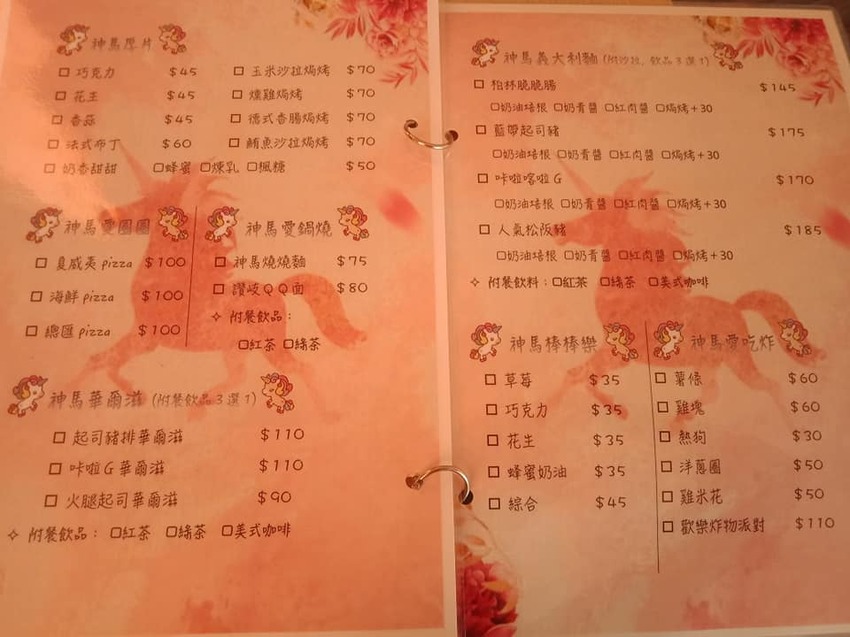 神馬厚片
☐ 巧克力 $45
☐ 花生 $45
☐ 香蒜 $45
☐ 法式布丁 $60
☐ 奶香甜甜 ☐蜂蜜 ☐煉乳 ☐楓糖 $50
☐ 玉米沙拉焗烤 $70
☐ 燻雞焗烤 $70
☐ 德式香腸焗烤 $70
☐ 鮪魚沙拉焗烤 $70
神馬愛圈圈
☐ 夏威夷 pizza $100
☐ 海鮮 pizza $100
☐ 總匯 pizza $100
神馬愛鍋燒
☐ 神馬燒燒麵 $75
☐ 讚岐QQ面 $80
✧ 附餐飲品：
☐紅茶 ☐綠茶
神馬華爾滋 (附餐飲品3選1)
☐ 起司豬排華爾滋 $110
☐ 咔啦G華爾滋 $110
☐ 火腿起司華爾滋 $90
✧ 附餐飲品： ☐紅茶 ☐綠茶 ☐美式咖啡
神馬義大利麵 (附沙拉、飲品3選1)
☐ 柏林脆脆腸 $145
☐奶油培根 ☐奶青醬 ☐紅肉醬 ☐焗烤+30
☐ 藍帶起司豬 $175
☐奶油培根 ☐奶青醬 ☐紅肉醬 ☐焗烤+30
☐ 咔啦喀啦G $170
☐奶油培根 ☐奶青醬 ☐紅肉醬 ☐焗烤+30
☐ 人氣松阪豬 $185
☐奶油培根 ☐奶青醬 ☐紅肉醬 ☐焗烤+30
✧ 附餐飲料：☐紅茶 ☐綠茶 ☐美式咖啡
神馬棒棒樂
☐ 草莓 $35
☐ 巧克力 $35
☐ 花生 $35
☐ 蜂蜜奶油 $35
☐ 綜合 $45
神馬愛吃炸
☐ 薯條 $60
☐ 雞塊 $60
☐ 熱狗 $30
☐ 洋蔥圈 $50
☐ 雞米花 $50
☐ 歡樂炸物派對 $110